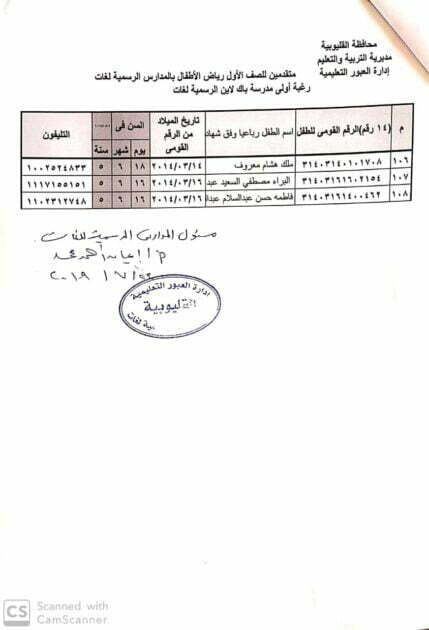 محافظة القليوبية
مديرية التربية والتعليم
إدارة العبور التعليمية
متقدمين للصف الأول رياض الأطفال بالمدارس الرسمية لغات
رغبة أولى مدرسة باك لاين الرسمية لغات
م (١٤ رقم)الرقم القومى للطفل اسم الطفل رباعيا وفق شهاد تاريخ الميلاد من الرقم القومى السن فى يوم شهر سنة التليفون
١٠٦ ٣١٤٠٣١٤٠١٠١٧٠٨ ملك هشام معروف ٢٠١٤/٠٣/١٤ ١٨ ٦ ٥ ١٠٠٢٥٢٤٨٣٣
١٠٧ ٣١٤٠٣١٦١٦٠٢١٥٤ البراء مصطفي السعيد عبد ٢٠١٤/٠٣/١٦ ١٦ ٦ ٥ ١١١٧١٥٥١٥١
١٠٨ ٣١٤٠٣١٦١٤٠٠٤٦٢ فاطمه حسن عبدالسلام عبدال ٢٠١٤/٠٣/١٦ ١٦ ٦ ٥ ١١٠٢٣١٢٧٤٨
مسئول المدارس الرسمية للغات
أحمد محمد
٢٠١٩/٧/
إدارة العبور التعليمية
القليوبية
لغات
CS Scanned with
CamScanner